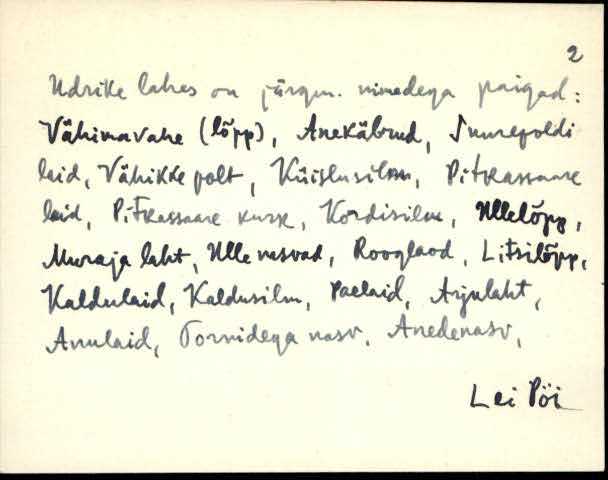 2
Udrike lahes on järgm. nimedega paigad:
Vähimavahe (lõpp), Anekäbrud, Suurepoldi
laid, Vähikke polt, Küislusilm, Pitkassaare
laid, Pitkassaare kurk, Kordisilm, Ullelõpp,
Muraja laht, Ulle nasvad, Rooglaod, Litsilõpp,
Kaldulaid, Kaldusilm, Paelaid, Arjulaht,
Anulaid, Tornidega nasv, Anedenasv,
Lei Pöi